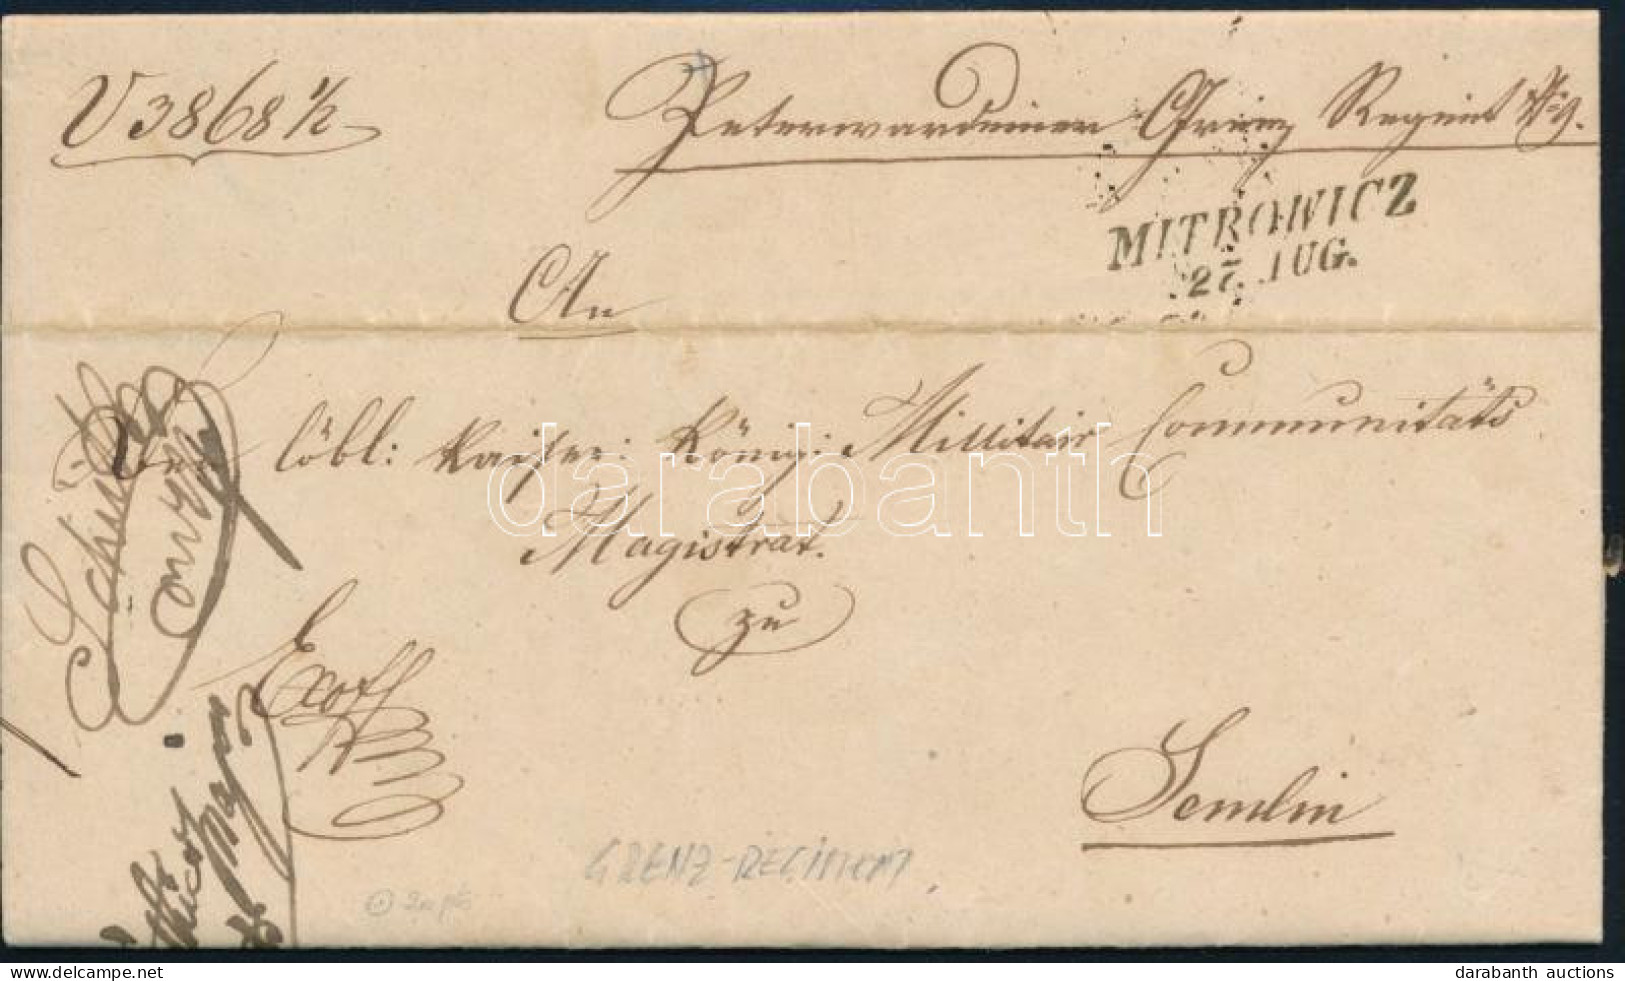 V 3868 1/2
Peterwardeiner Grenz Regiment No 9.
MITROWICZ
27. AUG.
An
Den löbl: Kaiser: König: Millitair Communitäts
Magistrat.
zu
Semlin
Exoff
GRENZ-REGIMENT
darabanth
© darabanth auctions